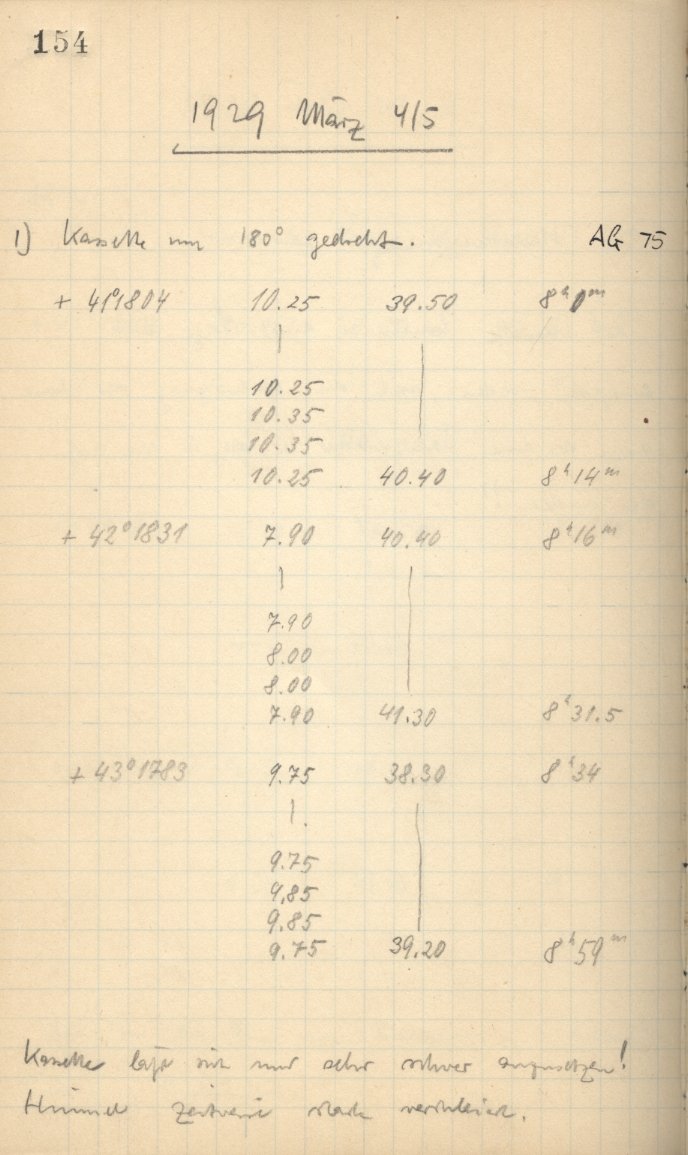 154
1929 März 4/5
1) Kassette um 180° gedreht. AG 75
+ 41°1804 10.25 39.50 8ʰ0ᵐ
10.25
10.35
10.35
10.25 40.40 8ʰ14ᵐ
+ 42°1831 7.90 40.40 8ʰ16ᵐ
7.90
8.00
8.00
7.90 41.30 8ʰ31.5
+ 43°1783 9.75 38.30 8ʰ34
9.75
9,85
9.85
9.75 39.20 8ʰ59ᵐ
Kassette läßt sich nur sehr schwer anzusetzen!
Himmel zeitweise stark verschleiert.